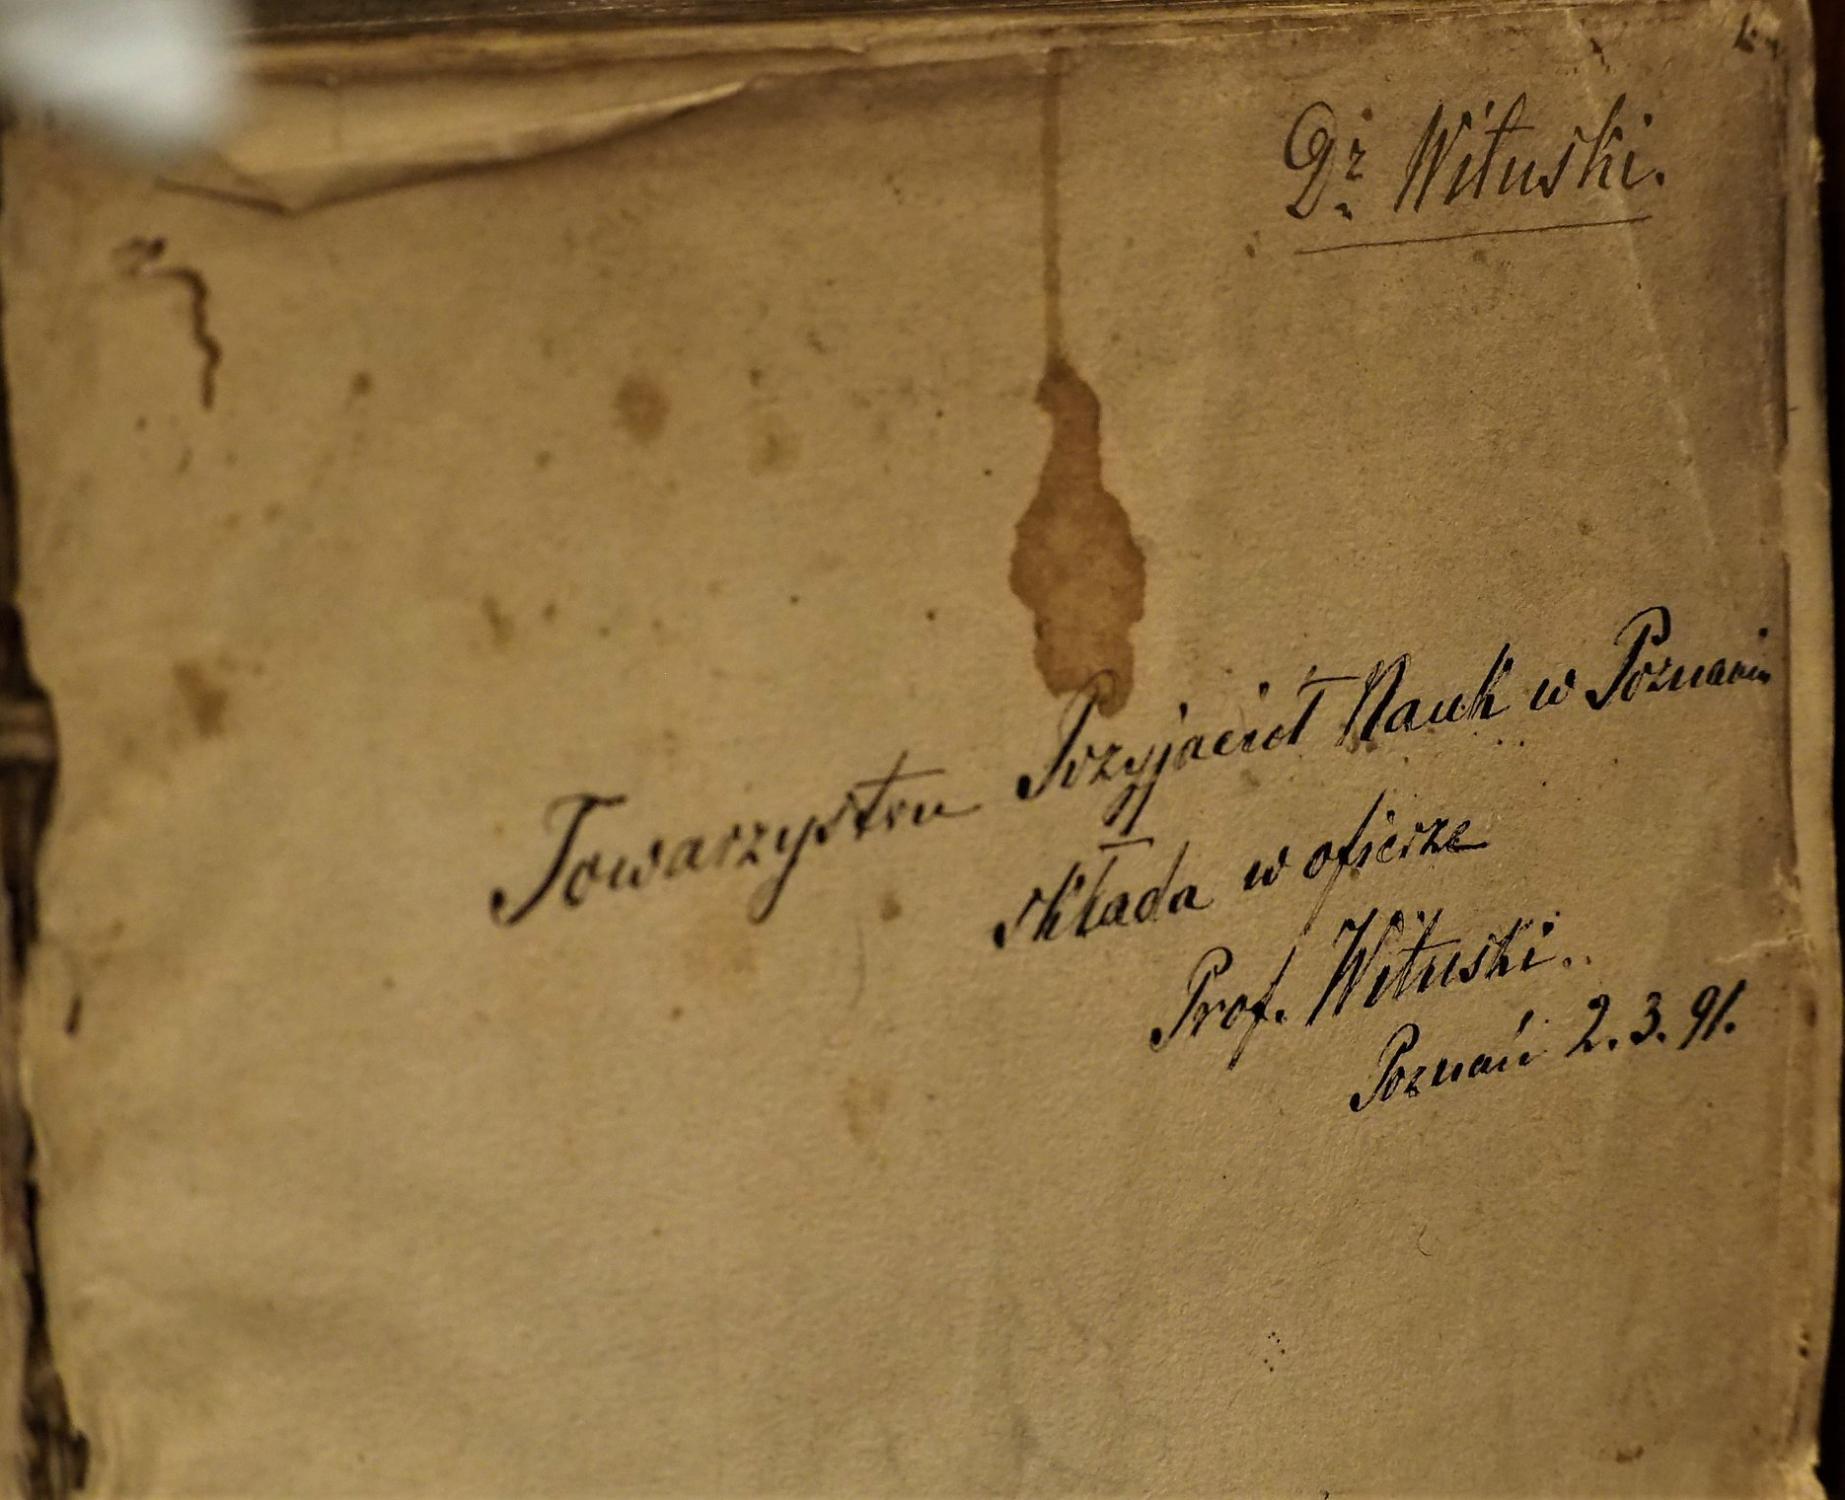 Dr. Wituski.
Towarzystwu Przyjaciół Nauk w Poznaniu
składa w ofierze
Prof. Wituski.
Poznań 2.3.91.